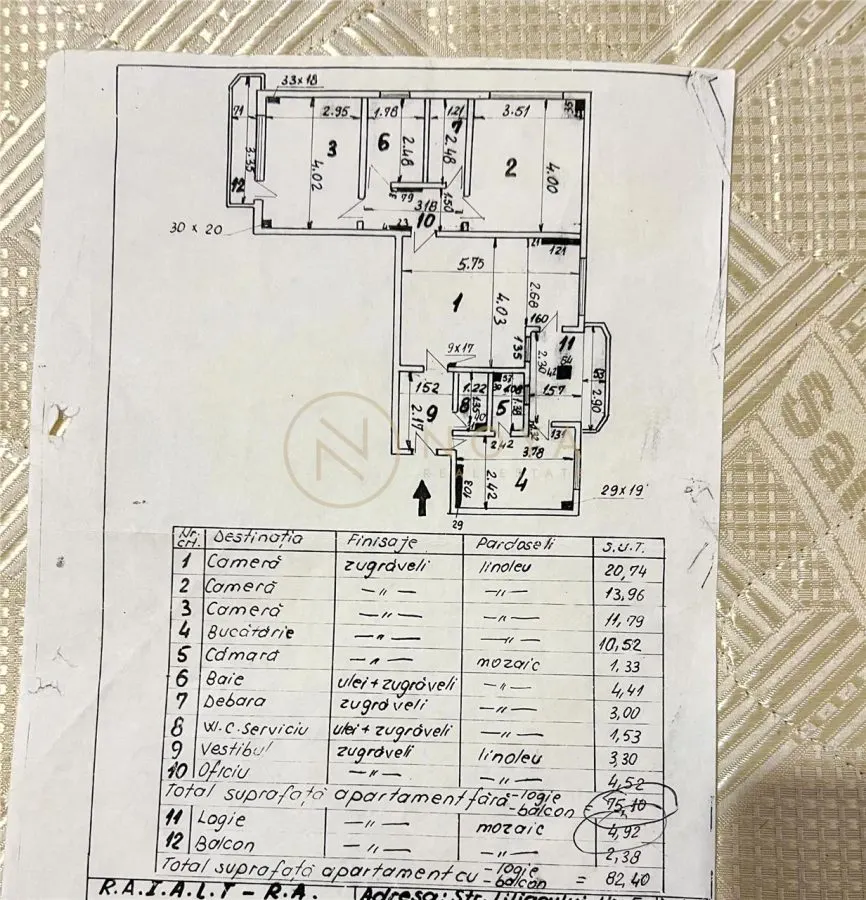 33x18
71
2.95
1.78
1.21
3.51
3
6
7
2
3.35
4.02
2.48
2.48
4.00
12
79
318
1.50
10
23
30 x 20
21
121
5.75
1
4.03
2.68
160
9x17
135
2.30
11
64
42
152
1.22
157
2.90
9
8
5
2.17
2.42
131
3.78
4
2.42
103
29x19
29
Nr. CH. Destinația Finisaje Pardoseli S.U.T.
1 Cameră zugrăveli linoleu 20,74
2 Cameră —〃— —〃— 13,96
3 Cameră —〃— —〃— 11,79
4 Bucătărie —〃— —〃— 10,52
5 Cămară —〃— mozaic 1,33
6 Baie ulei + zugrăveli —〃— 4,41
7 Debara zugrăveli —〃— 3,00
8 W.C. Serviciu ulei + zugrăveli —〃— 1,53
9 Vestibul zugrăveli linoleu 3,30
10 Oficiu —〃— —〃— 4,52
Total suprafață apartament fără -logie -balcon = 75,10
11 Logie —〃— mozaic 4,92
12 Balcon —〃— —〃— 2,38
Total suprafață apartament cu -logie -balcon = 82,40
R.A.I.A.L.T - R.A. Adresa: Str. Liliacului
NOVA
REAL ESTATE